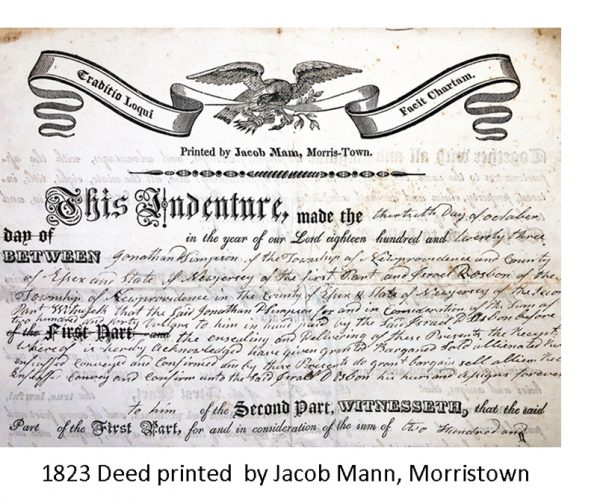 Traditio Loqui
Facit Chartam.
Printed by Jacob Mann, Morris-Town.
This Indenture, made the thirtieth Day of october
day of in the year of our Lord eighteen hundred and twenty three
BETWEEN Jonathan Simpson of the Township of Newprovidence and County
of Essex and State of Newjersey of the first Part and Israel Dosbon of the
Township of Newprovidence in the County of Essex & State of Newjersey of the Second
Part Witnesseth that the Said Jonathan Simpson for and in Consideration of the Sum of
to him in hand paid by the Said Israel before
of the First Part and the ensealing and Delivering of these Presents the Receipt
Whereof is hereby Acknowledged have given granted Bargained Sold
Conveyed and Confirmed and by these Presents do grant bargain sell
Convey and Confirm unto the Said his heirs and assigns forever
to him of the Second Part, WITNESSETH, that the said
Part of the First Part, for and in consideration of the sum of two hundred and
1823 Deed printed by Jacob Mann, Morristown